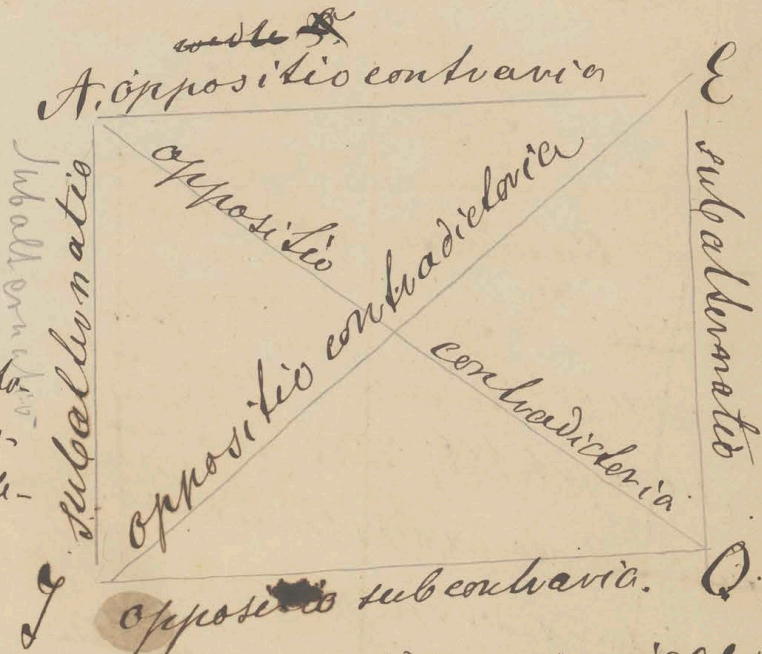 A. oppositio contraria E
subalternatio
subalternatio
oppositio contradictoria
oppositio contradictoria
subalternatio
I oppositio subcontraria. O